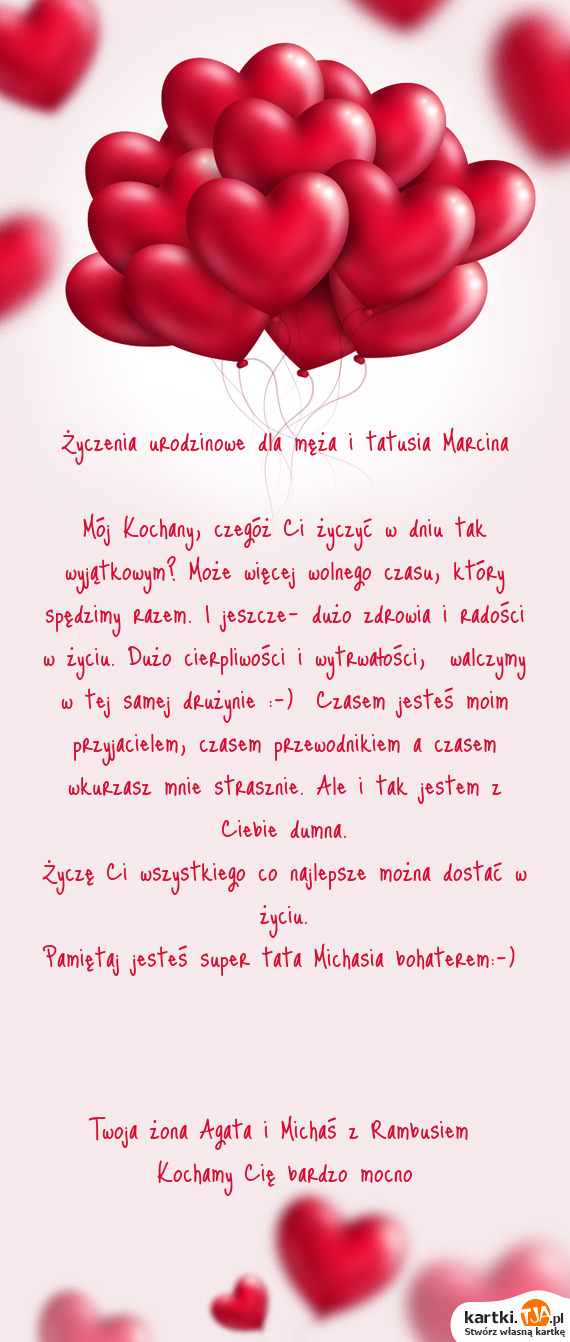 Życzenia urodzinowe dla męża i tatusia Marcina
Mój Kochany, czegóż Ci życzyć w dniu tak
wyjątkowym? Może więcej wolnego czasu, który
spędzimy razem. I jeszcze- dużo zdrowia i radości
w życiu. Dużo cierpliwości i wytrwałości, walczymy
w tej samej drużynie :-) Czasem jesteś moim
przyjacielem, czasem przewodnikiem a czasem
wkurzasz mnie strasznie. Ale i tak jestem z
Ciebie dumna.
Życzę Ci wszystkiego co najlepsze można dostać w
życiu.
Pamiętaj jesteś super tata Michasia bohaterem:-)
Twoja żona Agata i Michaś z Rambusiem
Kochamy Cię bardzo mocno
kartki.TJA.pl
Stwórz własną kartkę